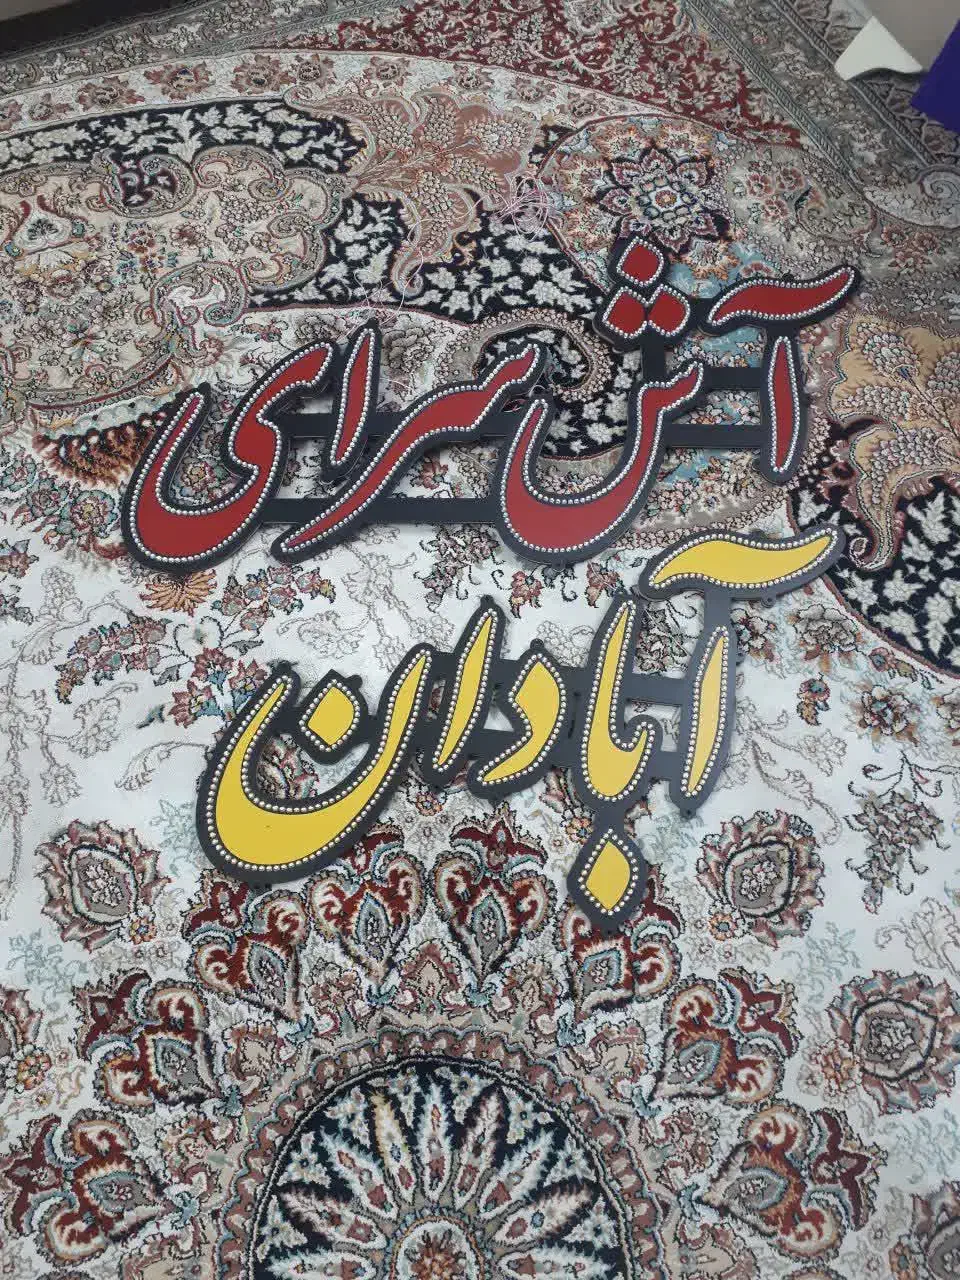 آش سرای
آبادان